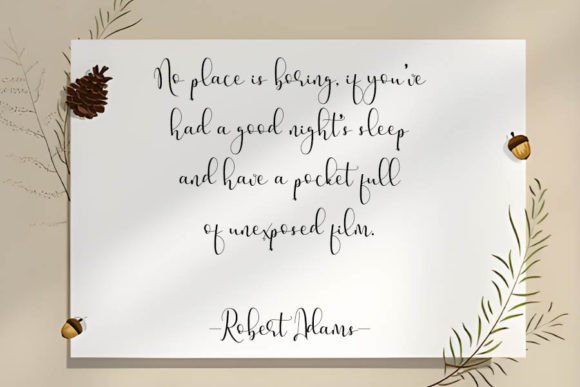 No place is boring, if you've
had a good night's sleep
and have a pocket full
of unexposed film.
–Robert Adams–